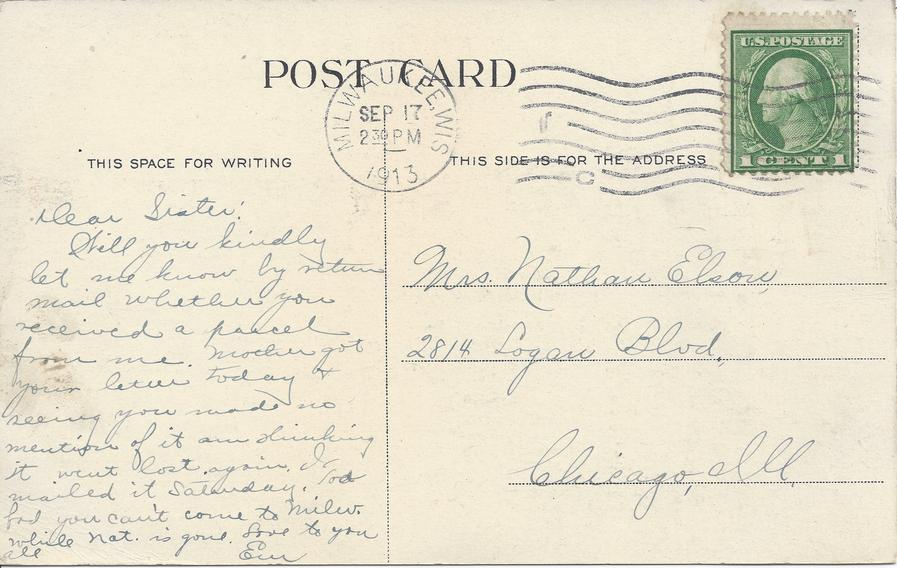 POST CARD
MILWAUKEE, WIS
SEP 17
2 30 PM
1913
U.S. POSTAGE
1 CENT 1
THIS SPACE FOR WRITING
THIS SIDE IS FOR THE ADDRESS
Dear Sister:
Will you kindly
let me know by return
mail whether you
received a parcel
from me. Mother got
your letter today &
seeing you made no
mention of it am thinking
it went lost again. I
mailed it Saturday. Too
bad you can't come to Milw.
while Nat. is gone. Love to you
all
Em
Mrs. Nathan Elson,
2814 Logan Blvd,
Chicago, Ill,